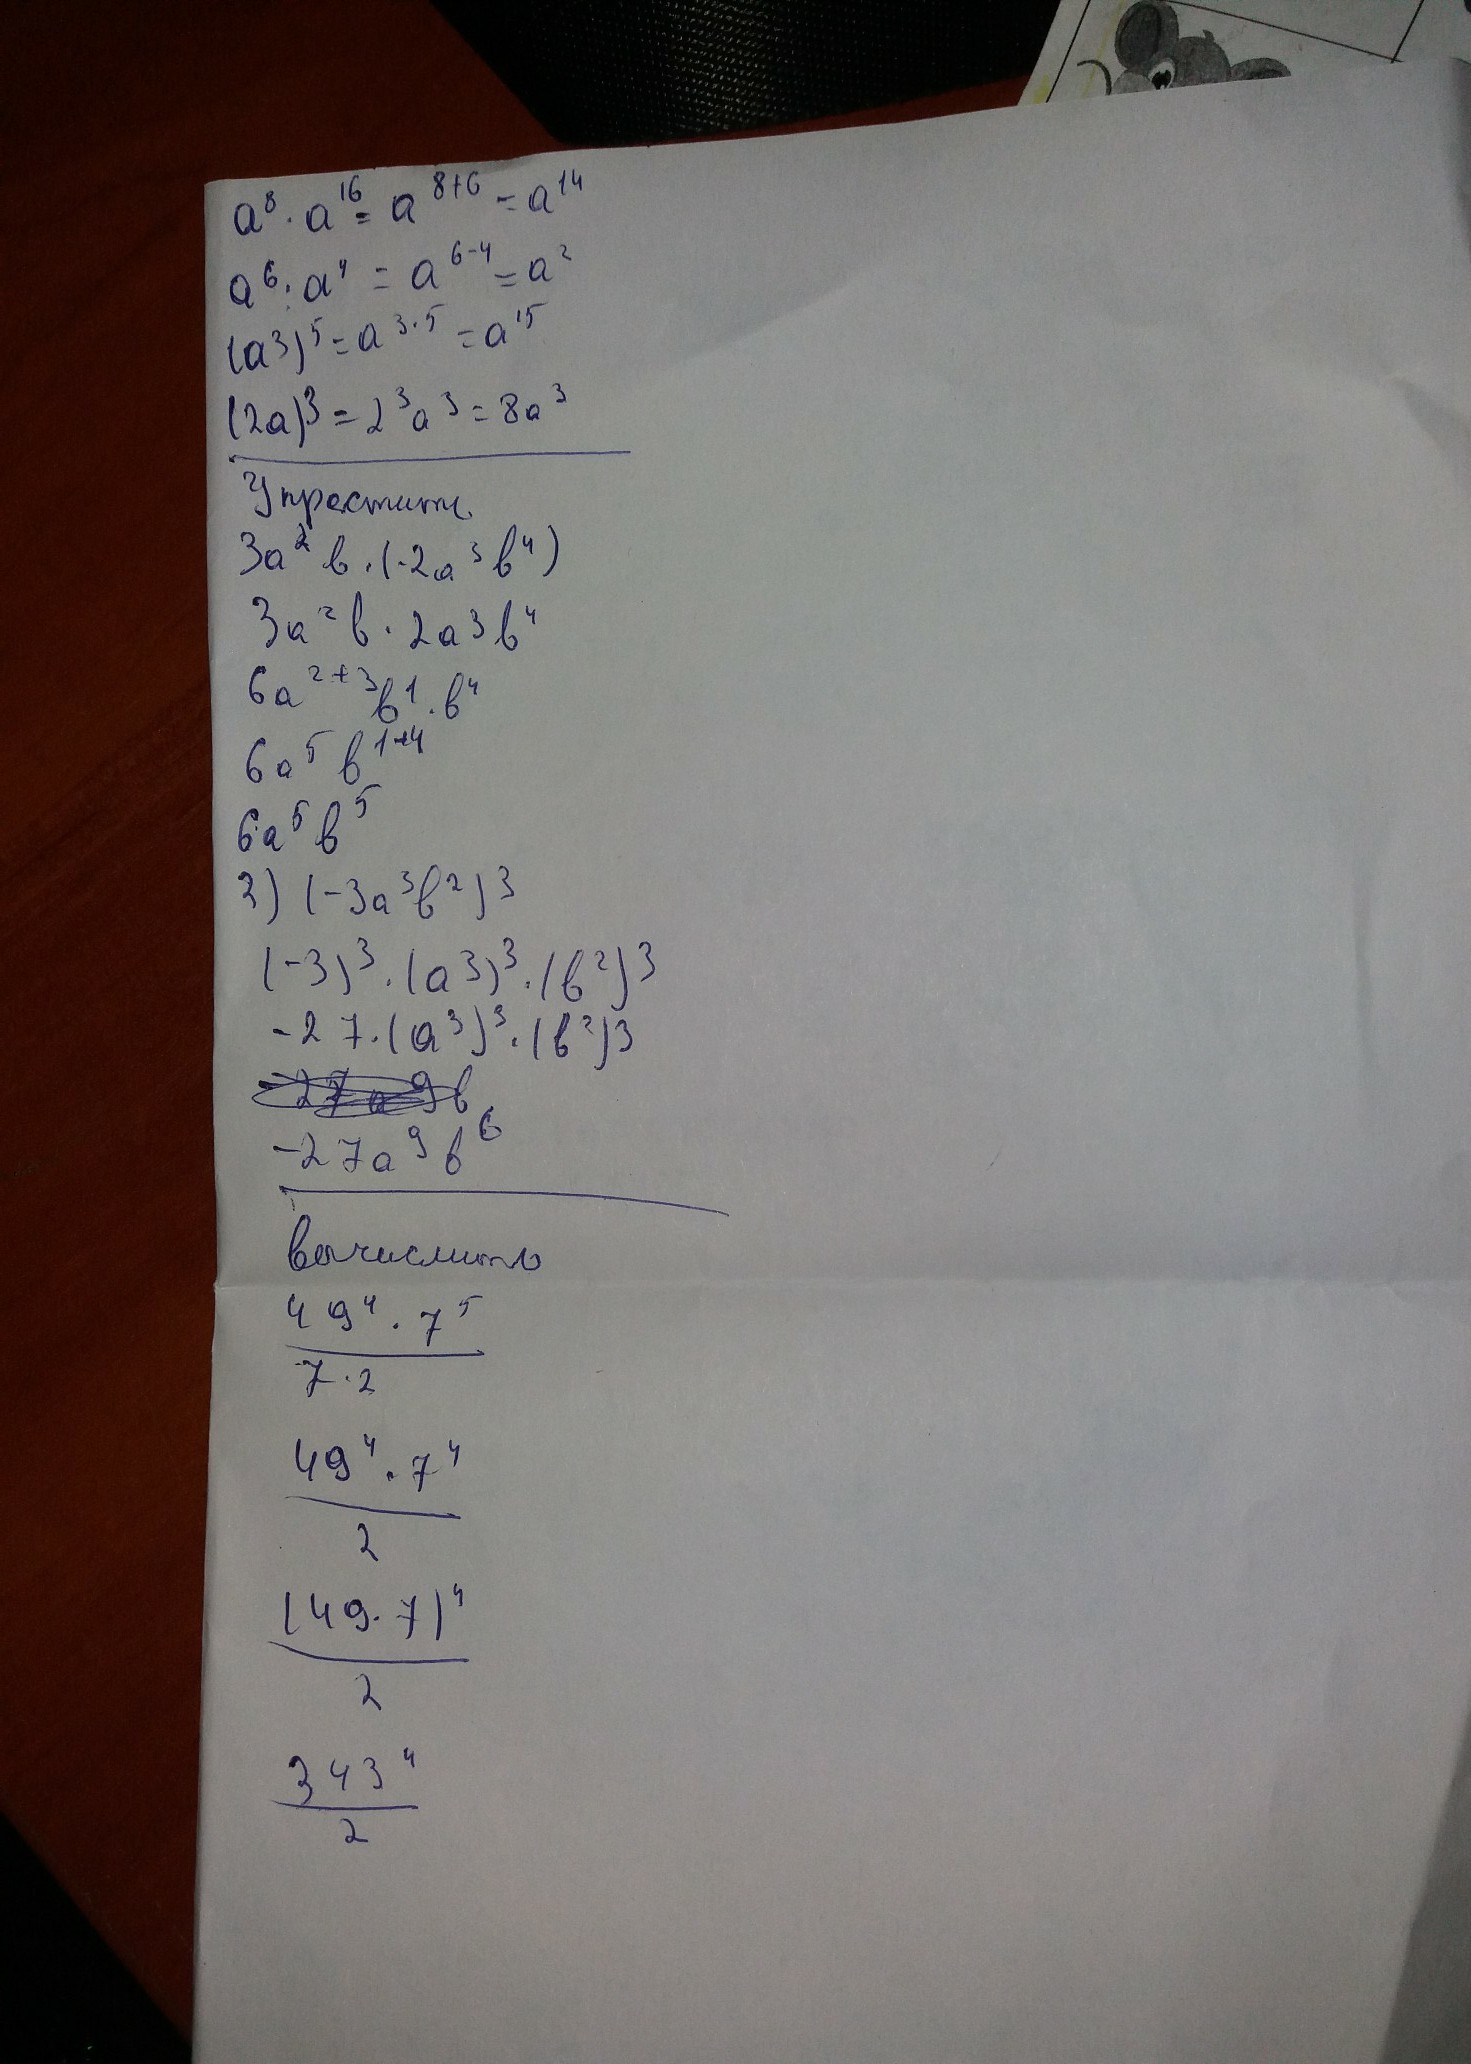 a⁸ · a¹⁶ = a⁸⁺⁶ = a¹⁴
a⁶ : a⁴ = a⁶⁻⁴ = a²
(a3)⁵ = a³·⁵ = a¹⁵
(2a)³ = 2³a³ = 8a³
Упростить
3a²b · (-2a³b⁴)
3a²b · 2a³b⁴
6a²⁺³b¹ · b⁴
6a⁵b¹⁺⁴
6a⁵b⁵
2) (-3a³b²)³
(-3)³ · (a³)³ · (b²)³
-27 · (a³)³ · (b²)³
-27a⁹b⁶
Вычислить
49⁴ · 7⁵
7 · 2
49⁴ · 7⁴
2
(49 · 7)⁴
2
343⁴
2